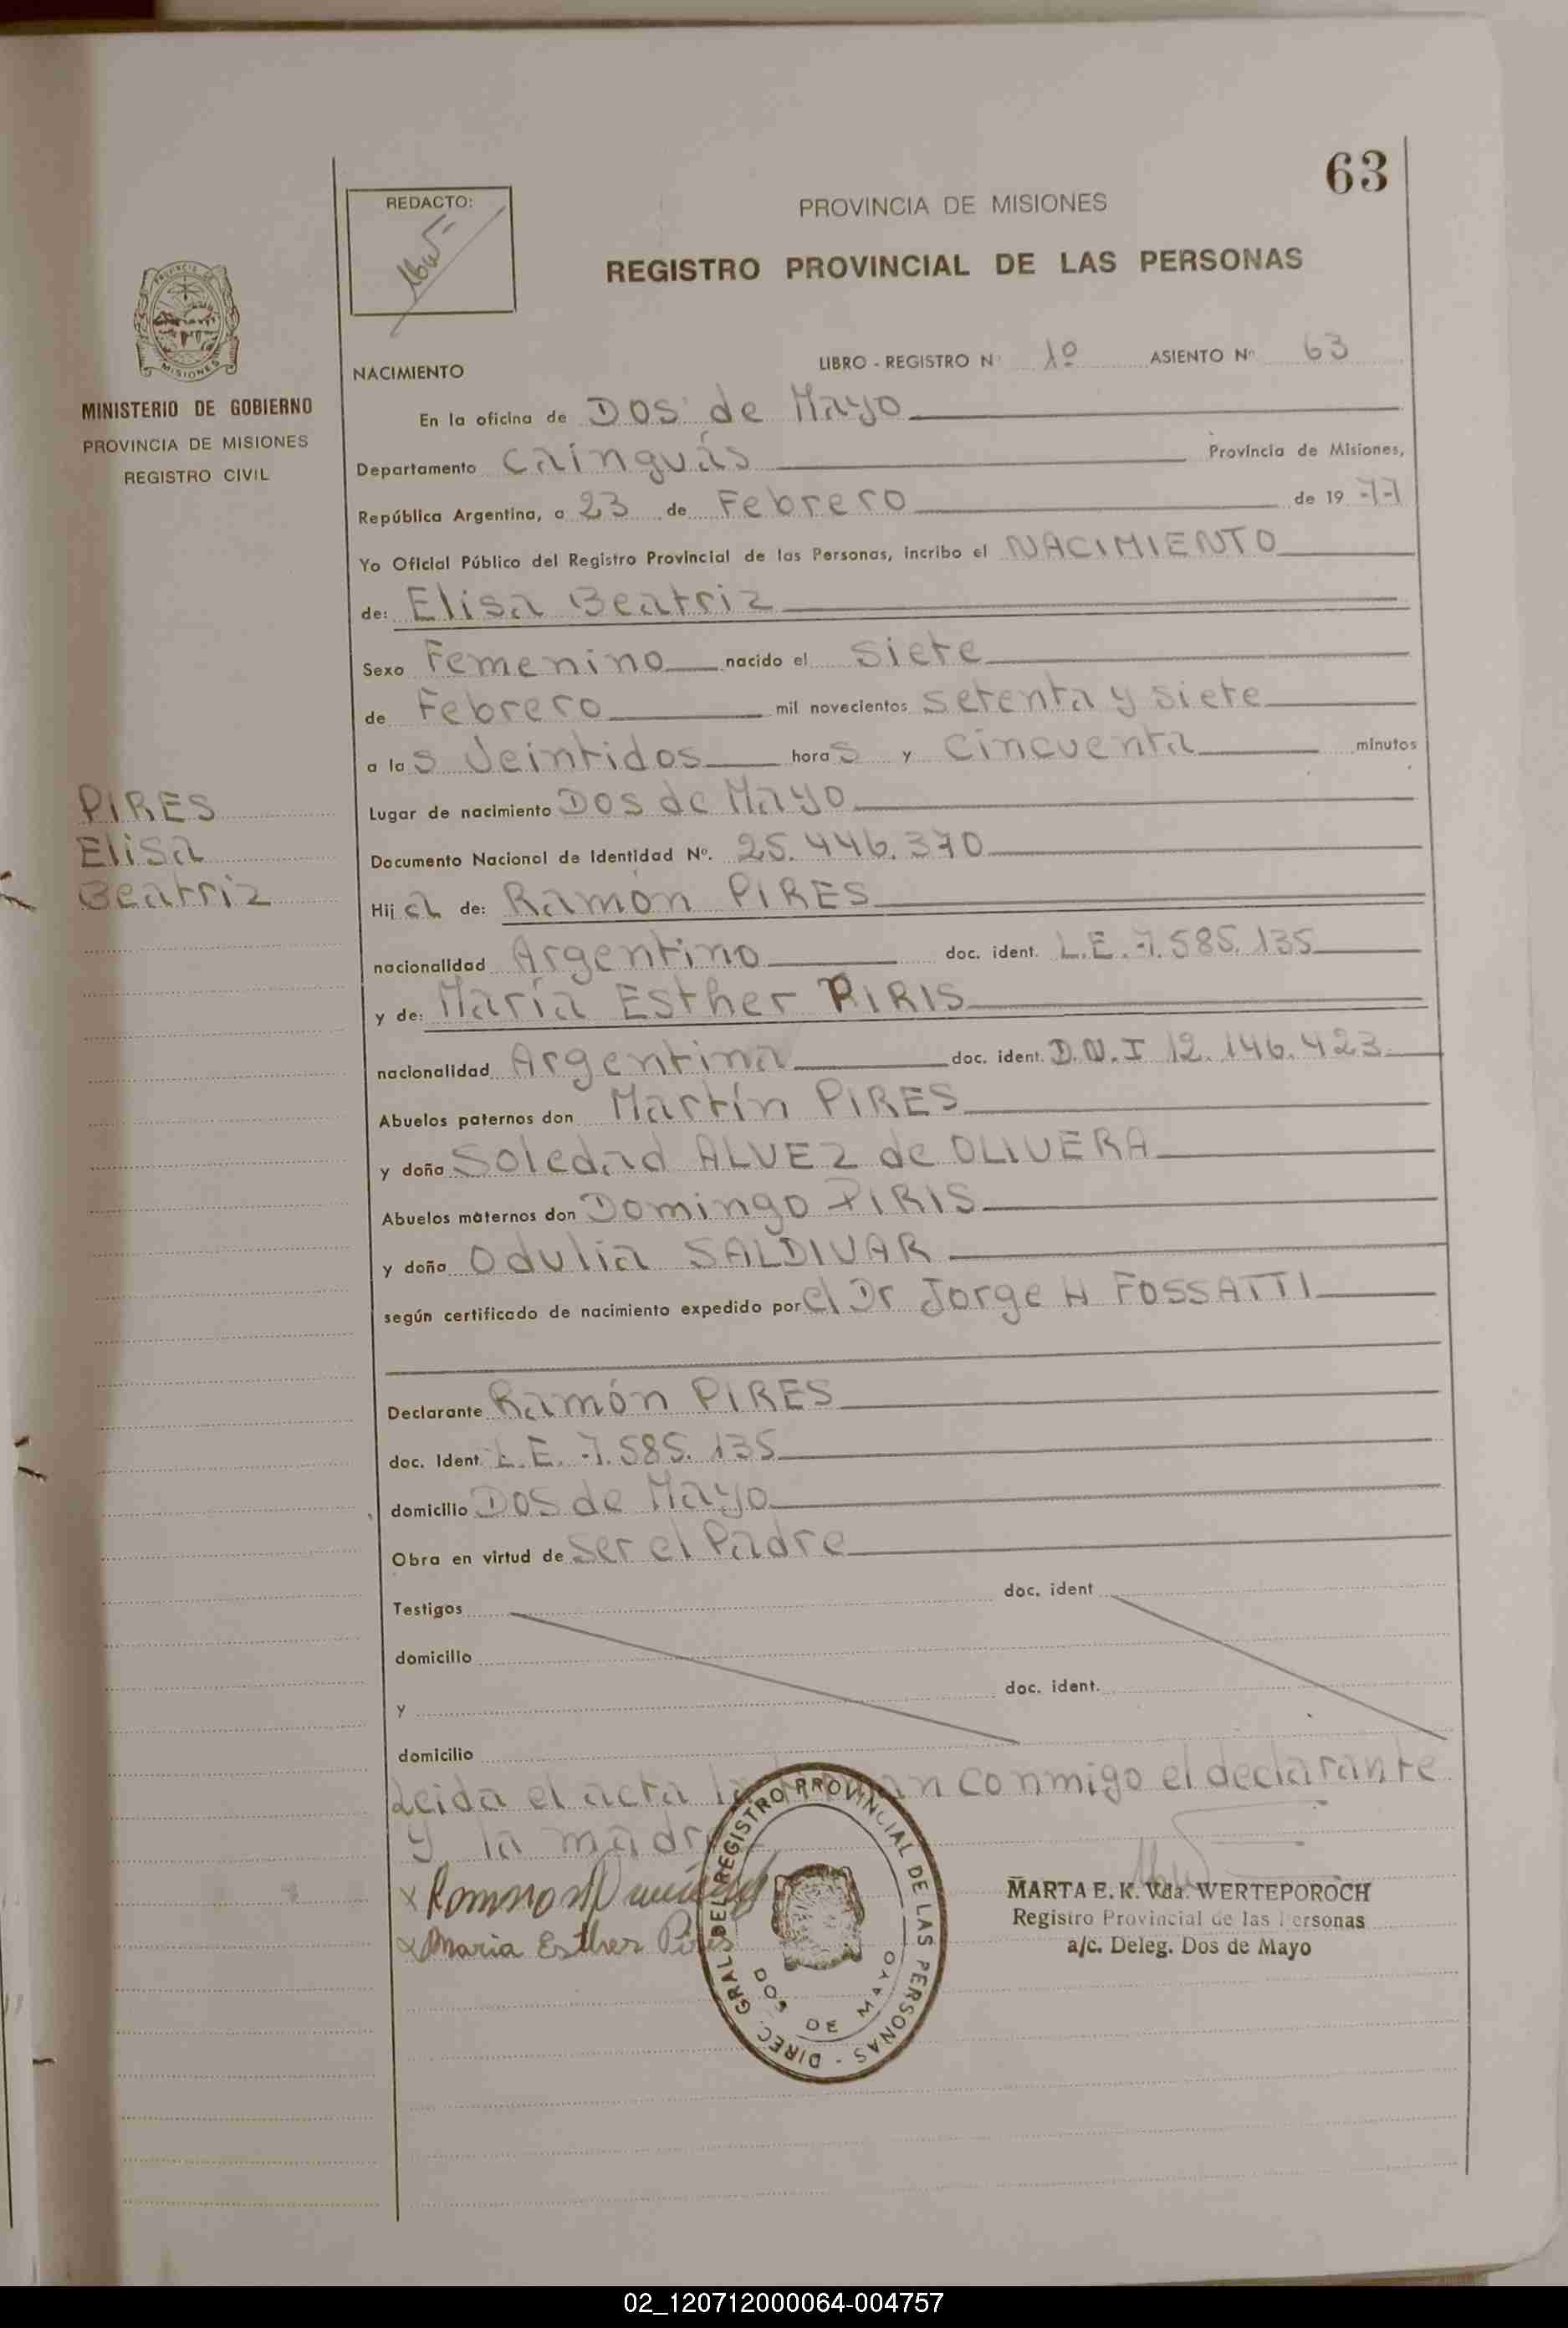 63
REDACTO:
PROVINCIA DE MISIONES
REGISTRO PROVINCIAL DE LAS PERSONAS
PROVINCIA DE
MISIONES
MINISTERIO DE GOBIERNO
PROVINCIA DE MISIONES
REGISTRO CIVIL
NACIMIENTO LIBRO - REGISTRO Nº 1º ASIENTO Nº 63
En la oficina de Dos de Mayo
Departamento Cainguás Provincia de Misiones,
República Argentina, a 23 de Febrero de 1977
Yo Oficial Público del Registro Provincial de las Personas, incribo el NACIMIENTO
de: Elisa Beatriz
Sexo Femenino nacido el siete
de Febrero mil novecientos setenta y siete
a las veintidos horas y cincuenta minutos
PIRES
Elisa
Beatriz
Lugar de nacimiento Dos de Mayo
Documento Nacional de Identidad Nº. 25.446.370
Hija de: Ramón PIRES
nacionalidad Argentino doc. ident. L.E. 7.585.135
y de: María Esther PIRIS
nacionalidad Argentina doc. ident. D.N.I 12.146.423
Abuelos paternos don Martín PIRES
y doña Soledad ALVEZ de OLIVERA
Abuelos maternos don Domingo PIRIS
y doña Odulia SALDIVAR
según certificado de nacimiento expedido por el Dr Jorge H FOSSATTI
Declarante Ramón PIRES
doc. Ident. L.E. 7.585.135
domicilio Dos de Mayo
Obra en virtud de ser el Padre
Testigos doc. ident
domicilio
y doc. ident.
domicilio
Leida el acta la firman conmigo el declarante
y la madre
x Ramon
x Maria Esther Piris
DIREC. GRAL. DEL REGISTRO PROVINCIAL DE LAS PERSONAS -
DOS DE MAYO
MARTA E. K. Vda. WERTEPOROCH
Registro Provincial de las Personas
a/c. Deleg. Dos de Mayo
02_120712000064-004757